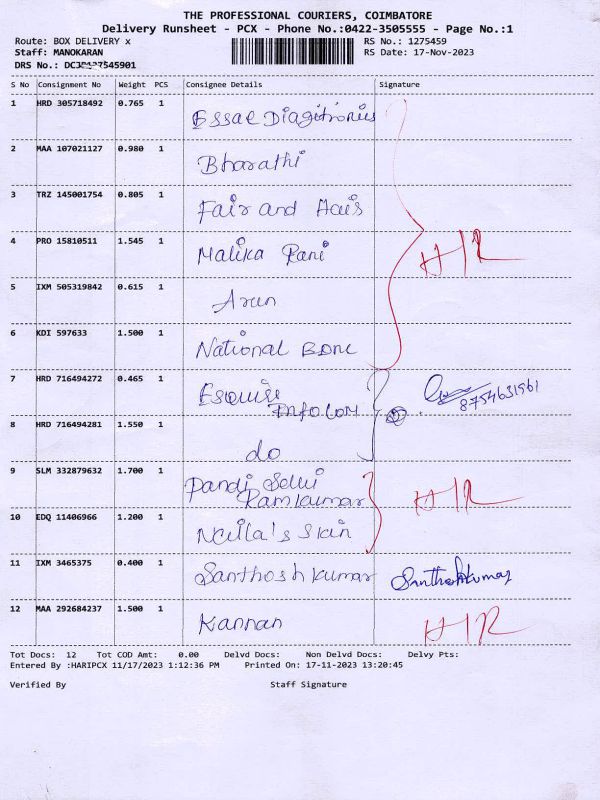 THE PROFESSIONAL COURIERS, COIMBATORE
Delivery Runsheet - PCX - Phone No.:0422-3505555 - Page No.:1
Route: BOX DELIVERY x RS No.: 1275459
Staff: MANOKARAN RS Date: 17-Nov-2023
DRS No.:
S No Consignment No Weight PCS Consignee Details Signature
1 HRD 305718492 0.765 1 Essae
2 MAA 107021127 0.980 1 Bharathi
3 TRZ 145001754 0.805 1 Fair and
4 PRO 15810511 1.545 1 Malika Rani HR
5 IXM 505319842 0.615 1 Arun
6 KDI 597633 1.500 1 National
7 HRD 716494272 0.465 1
Infocom 8754631961
8 HRD 716494281 1.550 1
do
9 SLM 332879632 1.700 1 Pandi Selvi
Ramkumar HR
10 EDQ 11406966 1.200 1 Skin
11 IXM 3465375 0.400 1 Santhosh kumar Santhoshkumar
12 MAA 292684237 1.500 1 Kannan HR
Tot Docs: 12 Tot COD Amt: 0.00 Delvd Docs: Non Delvd Docs: Delvy Pts:
Entered By :HARIPCX 11/17/2023 1:12:36 PM Printed On: 17-11-2023 13:20:45
Verified By Staff Signature